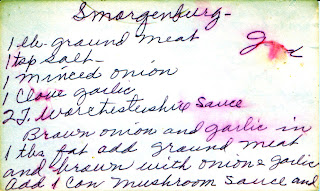 Smorgenburg-
1 lb. ground meat
1 tsp salt-
1 minced onion
1 Clove garlic
2 T. Worchestushire Sauce
Brown onion and garlic in
1 tbs fat add ground meat
and brown with onion & garlic
add 1 Can mushroom Sauce and